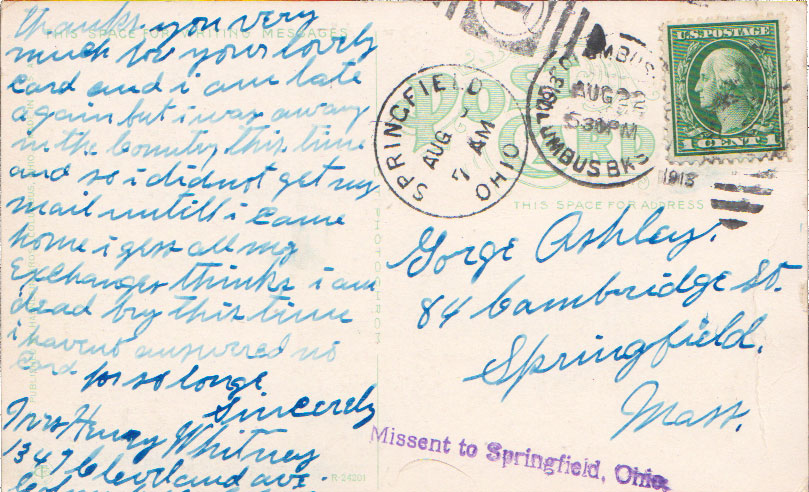 Thanks you very
THIS SPACE FOR WRITING MESSAGES
much for your lovly
card and i am late
again but i was away
in the Country this time
and so i did not get my
mail untill i came
home i gess all my
Exchanges thinks i am
dead by this time
i havent answered no
Card for so longe
Sincerely
Mrs Henry Whitney
1347 Cleveland ave.
R-24201
SPRINGFIELD
AUG
7 AM
OHIO
COLUMBUS
AUG 22
530PM
1913
COLUMBUS BKS
U.S. POSTAGE
1 CENT 1
POST
CARD
THIS SPACE FOR ADDRESS
Gorge Ashley.
84 Cambridge St.
Springfield.
Mass.
Missent to Springfield, Ohio.